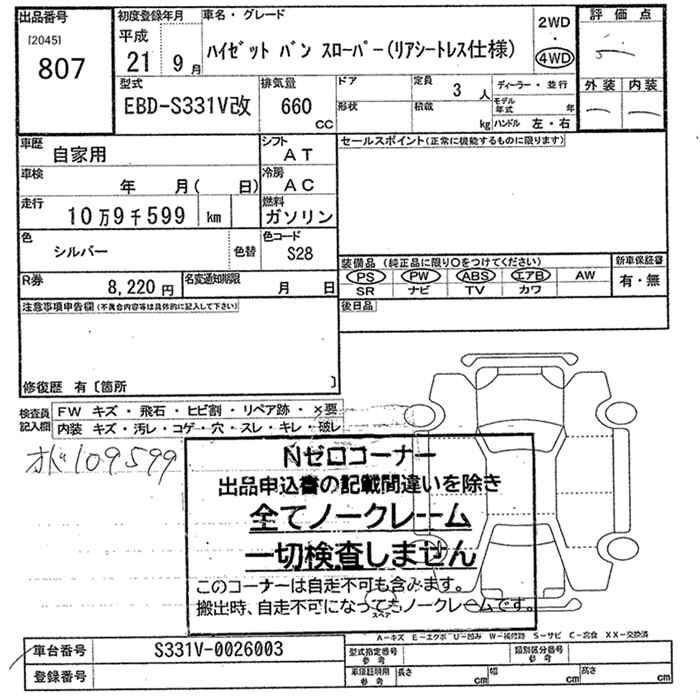 出品番号
[2045]
807
初度登録年月
平成
21 9月
車名・グレード
ハイゼット バン スローパー(リアシートレス仕様)
2WD
・
4WD
評価点
外装 内装
型式
EBD-S331V改
排気量
660
CC
ドア
形状
定員
3人
積載
kg
ディーラー・並行
モデル年式 年
ハンドル 左・右
車歴
自家用
シフト
AT
セールスポイント(正常に機能するものに限ります)
車検
年 月( 日)
冷房
AC
走行
10万9千599 km
燃料
ガソリン
色
シルバー
色替
色コード
S28
装備品 (純正品に限り○をつけてください)
PS PW ABS エアB AW
SR ナビ TV カワ
新車保証書
有・無
R券
8,220円
名変通知期限
月 日
後日品
注意事項申告欄(不具合内容等は具体的に記入して下さい)
修復歴 有〔箇所 〕
検査員記入欄
FW キズ・飛石・ヒビ割・リペア跡・×要
内装 キズ・汚レ・コゲ・穴・スレ・キレ・破レ
オド109599
Nゼロコーナー
出品申込書の記載間違いを除き
全てノークレーム
一切検査しません
このコーナーは自走不可も含みます。
搬出時、自走不可になってもノークレームです。
スペア
A-キズ E-エクボ U-凹み W-補修跡 S-サビ C-腐食 XX-交換済
車台番号
S331V-0026003
型式指定番号
参考
類別区分番号
参考
登録番号
車庫証明用
参考
長さ cm
幅 cm
高さ cm